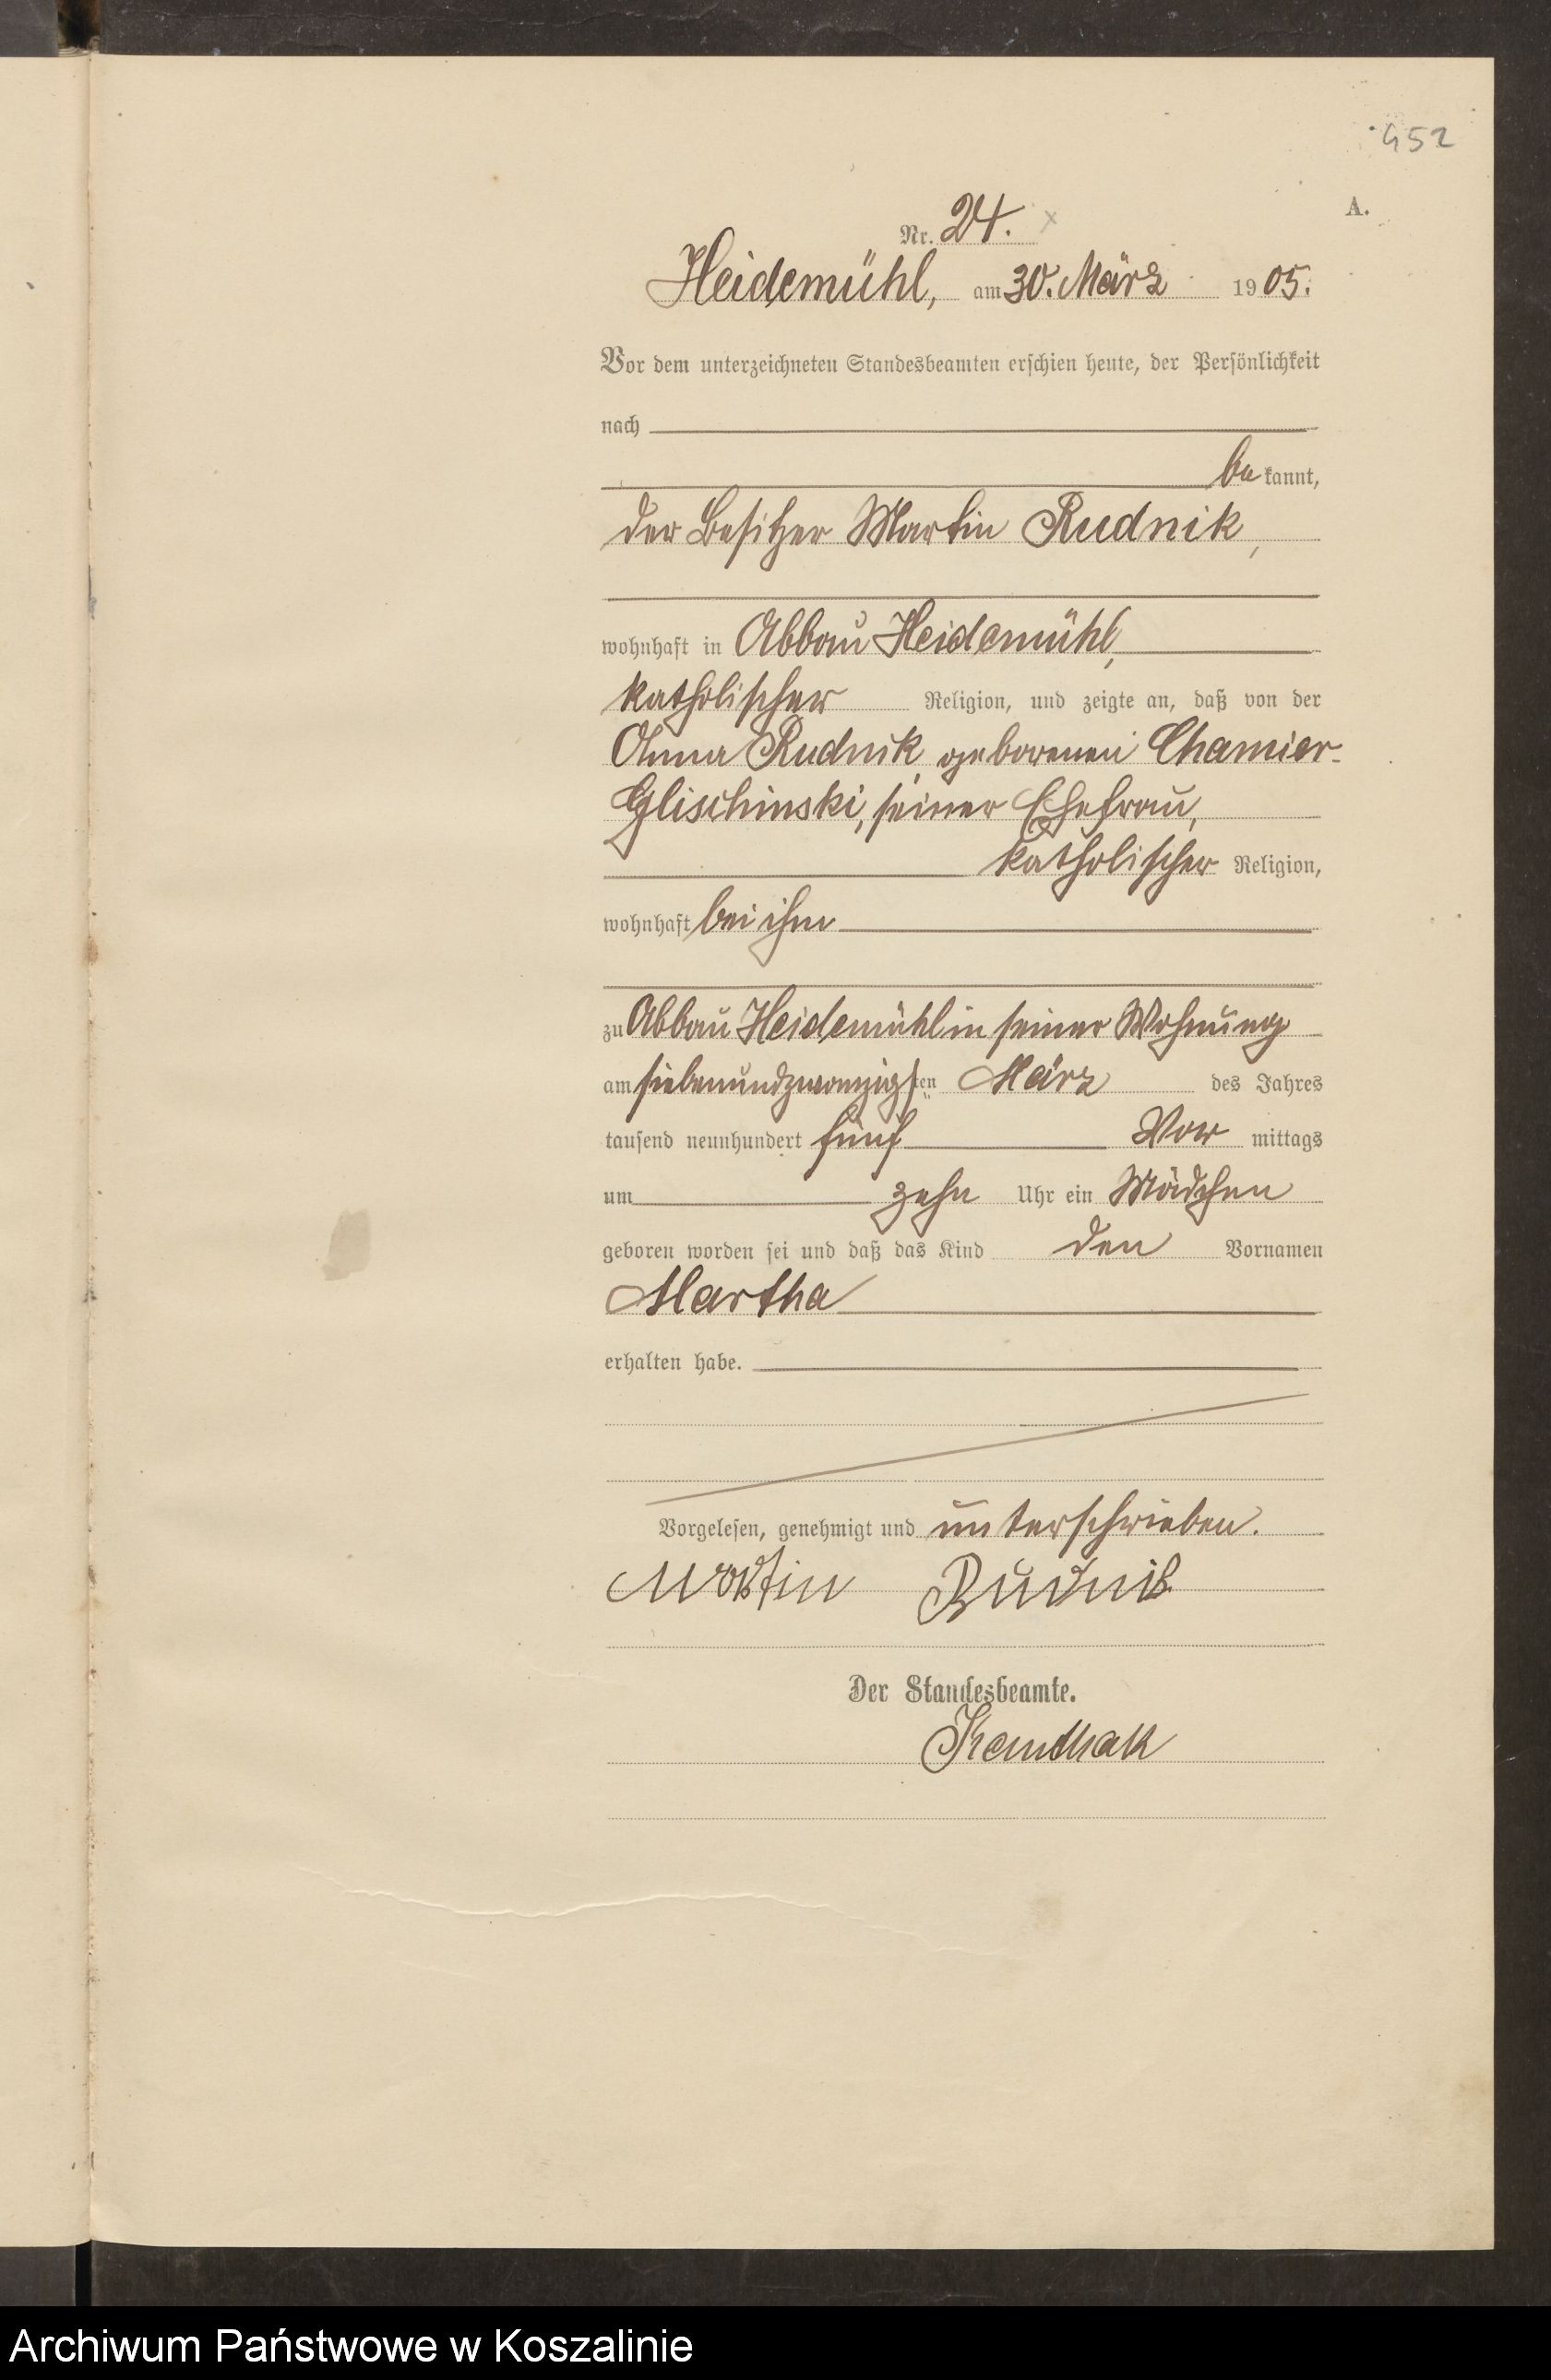 452
A.
Nr. 24. x
Heidemühl, am 30. März 1905.
Vor dem unterzeichneten Standesbeamten erschien heute, der Persönlichkeit
nach
be kannt,
der Besitzer Martin Rudnik,
wohnhaft in Abbau Heidemühl,
katholischer Religion, und zeigte an, daß von der
Anna Rudnik, geborenen Chamier-
Glischinski, seiner Ehefrau,
katholischer Religion,
wohnhaft bei ihm
zu Abbau Heidemühl in seiner Wohnung
am siebenundzwanzigsten März des Jahres
tausend neunhundert fünf Vor mittags
um zehn Uhr ein Mädchen
geboren worden sei und daß das Kind den Vornamen
Martha
erhalten habe.
Vorgelesen, genehmigt und unterschrieben.
Martin Rudnik
Der Standesbeamte.
Archiwum Państwowe w Koszalinie